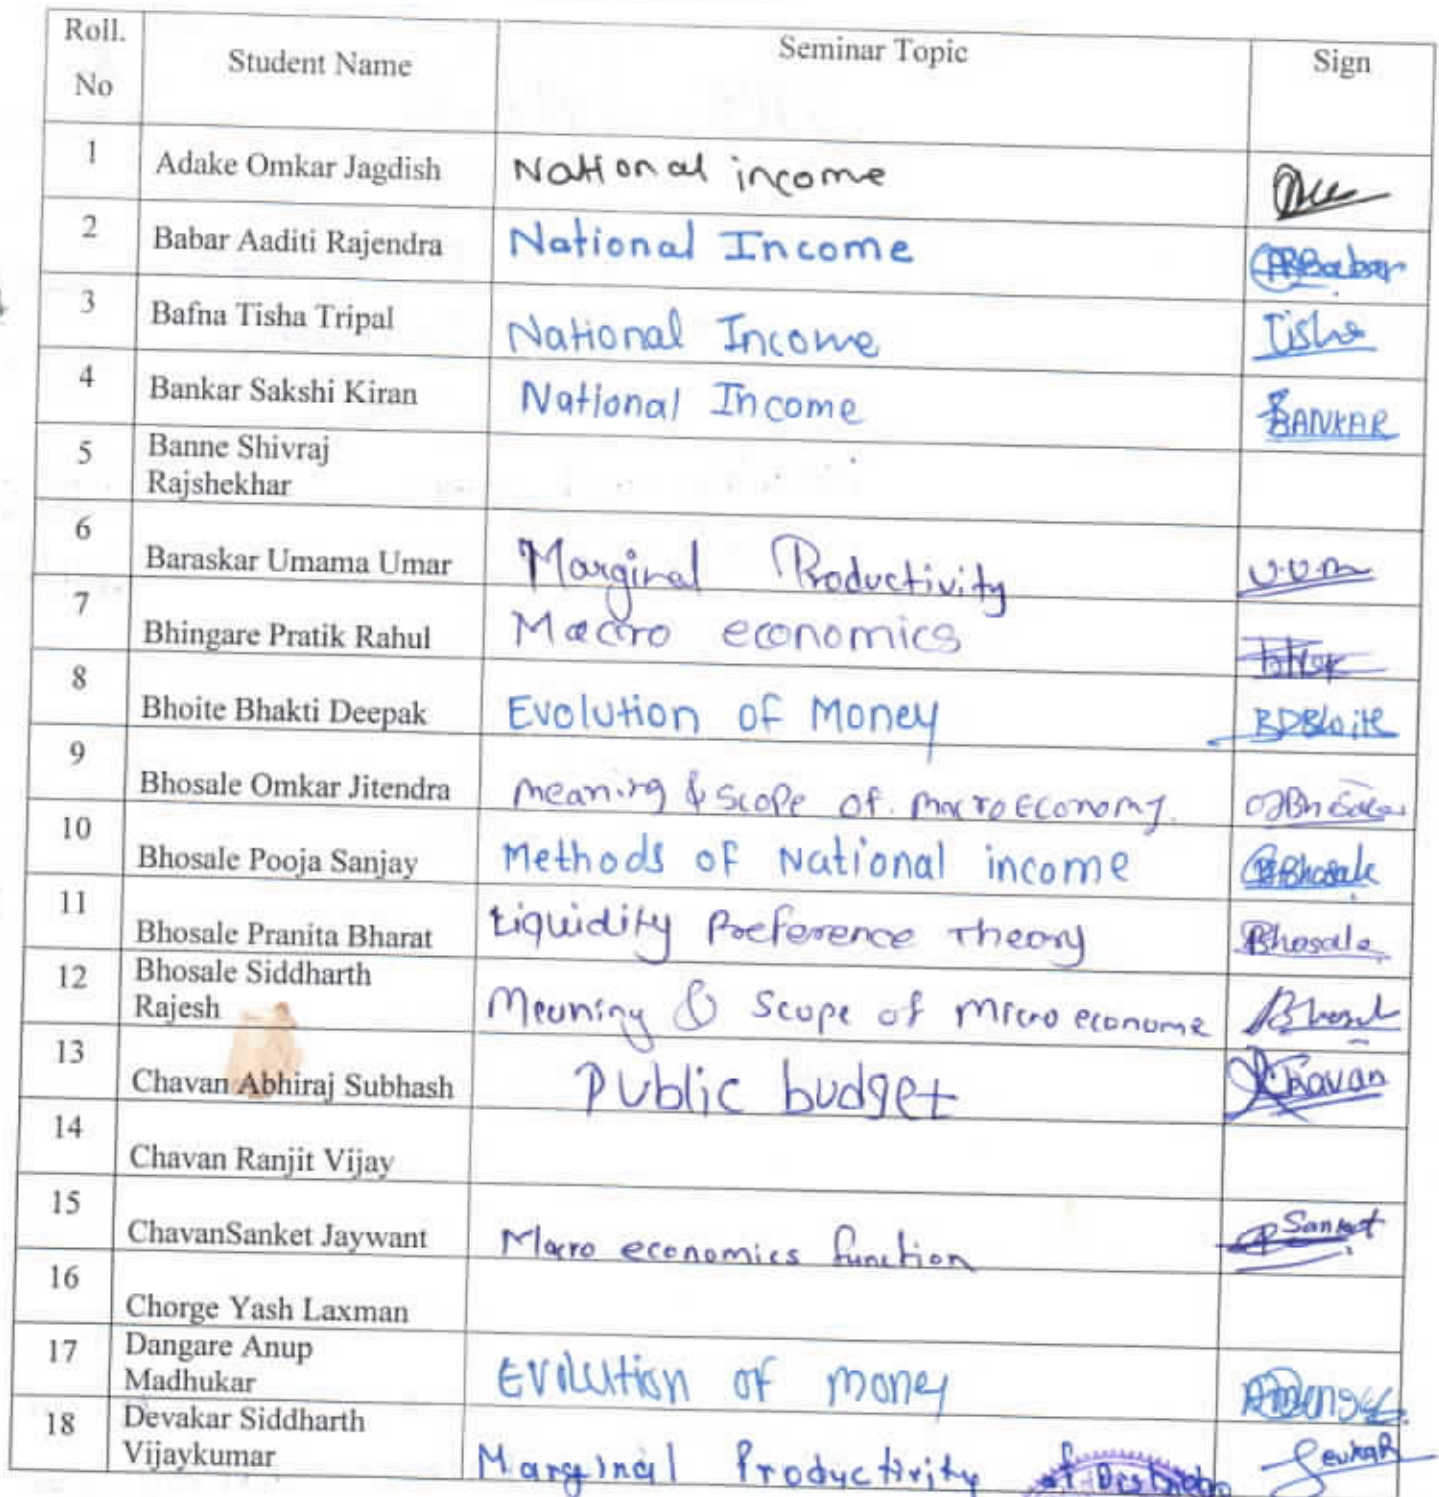 Roll. No Student Name Seminar Topic Sign
1 Adake Omkar Jagdish National income
2 Babar Aaditi Rajendra National Income ARBabar
3 Bafna Tisha Tripal National Income Tisha
4 Bankar Sakshi Kiran National Income BANKAR
5 Banne Shivraj
Rajshekhar
6 Baraskar Umama Umar Marginal Productivity U.U.m
7 Bhingare Pratik Rahul Macro economics
8 Bhoite Bhakti Deepak Evolution of Money BDBhoite
9 Bhosale Omkar Jitendra meaning & scope of. macroeconomy. OJBhosale
10 Bhosale Pooja Sanjay Methods of National income Bhosale
11 Bhosale Pranita Bharat Liquidity Preference Theory Bhosale
12 Bhosale Siddharth
Rajesh Meaning & Scope of Micro econome Bhosal
13 Chavan Abhiraj Subhash Public budget Chavan
14 Chavan Ranjit Vijay
15 ChavanSanket Jaywant Macro economics function Sanket
16 Chorge Yash Laxman
17 Dangare Anup
Madhukar Evolution of money
18 Devakar Siddharth
Vijaykumar Marginal Productivity of Distributio